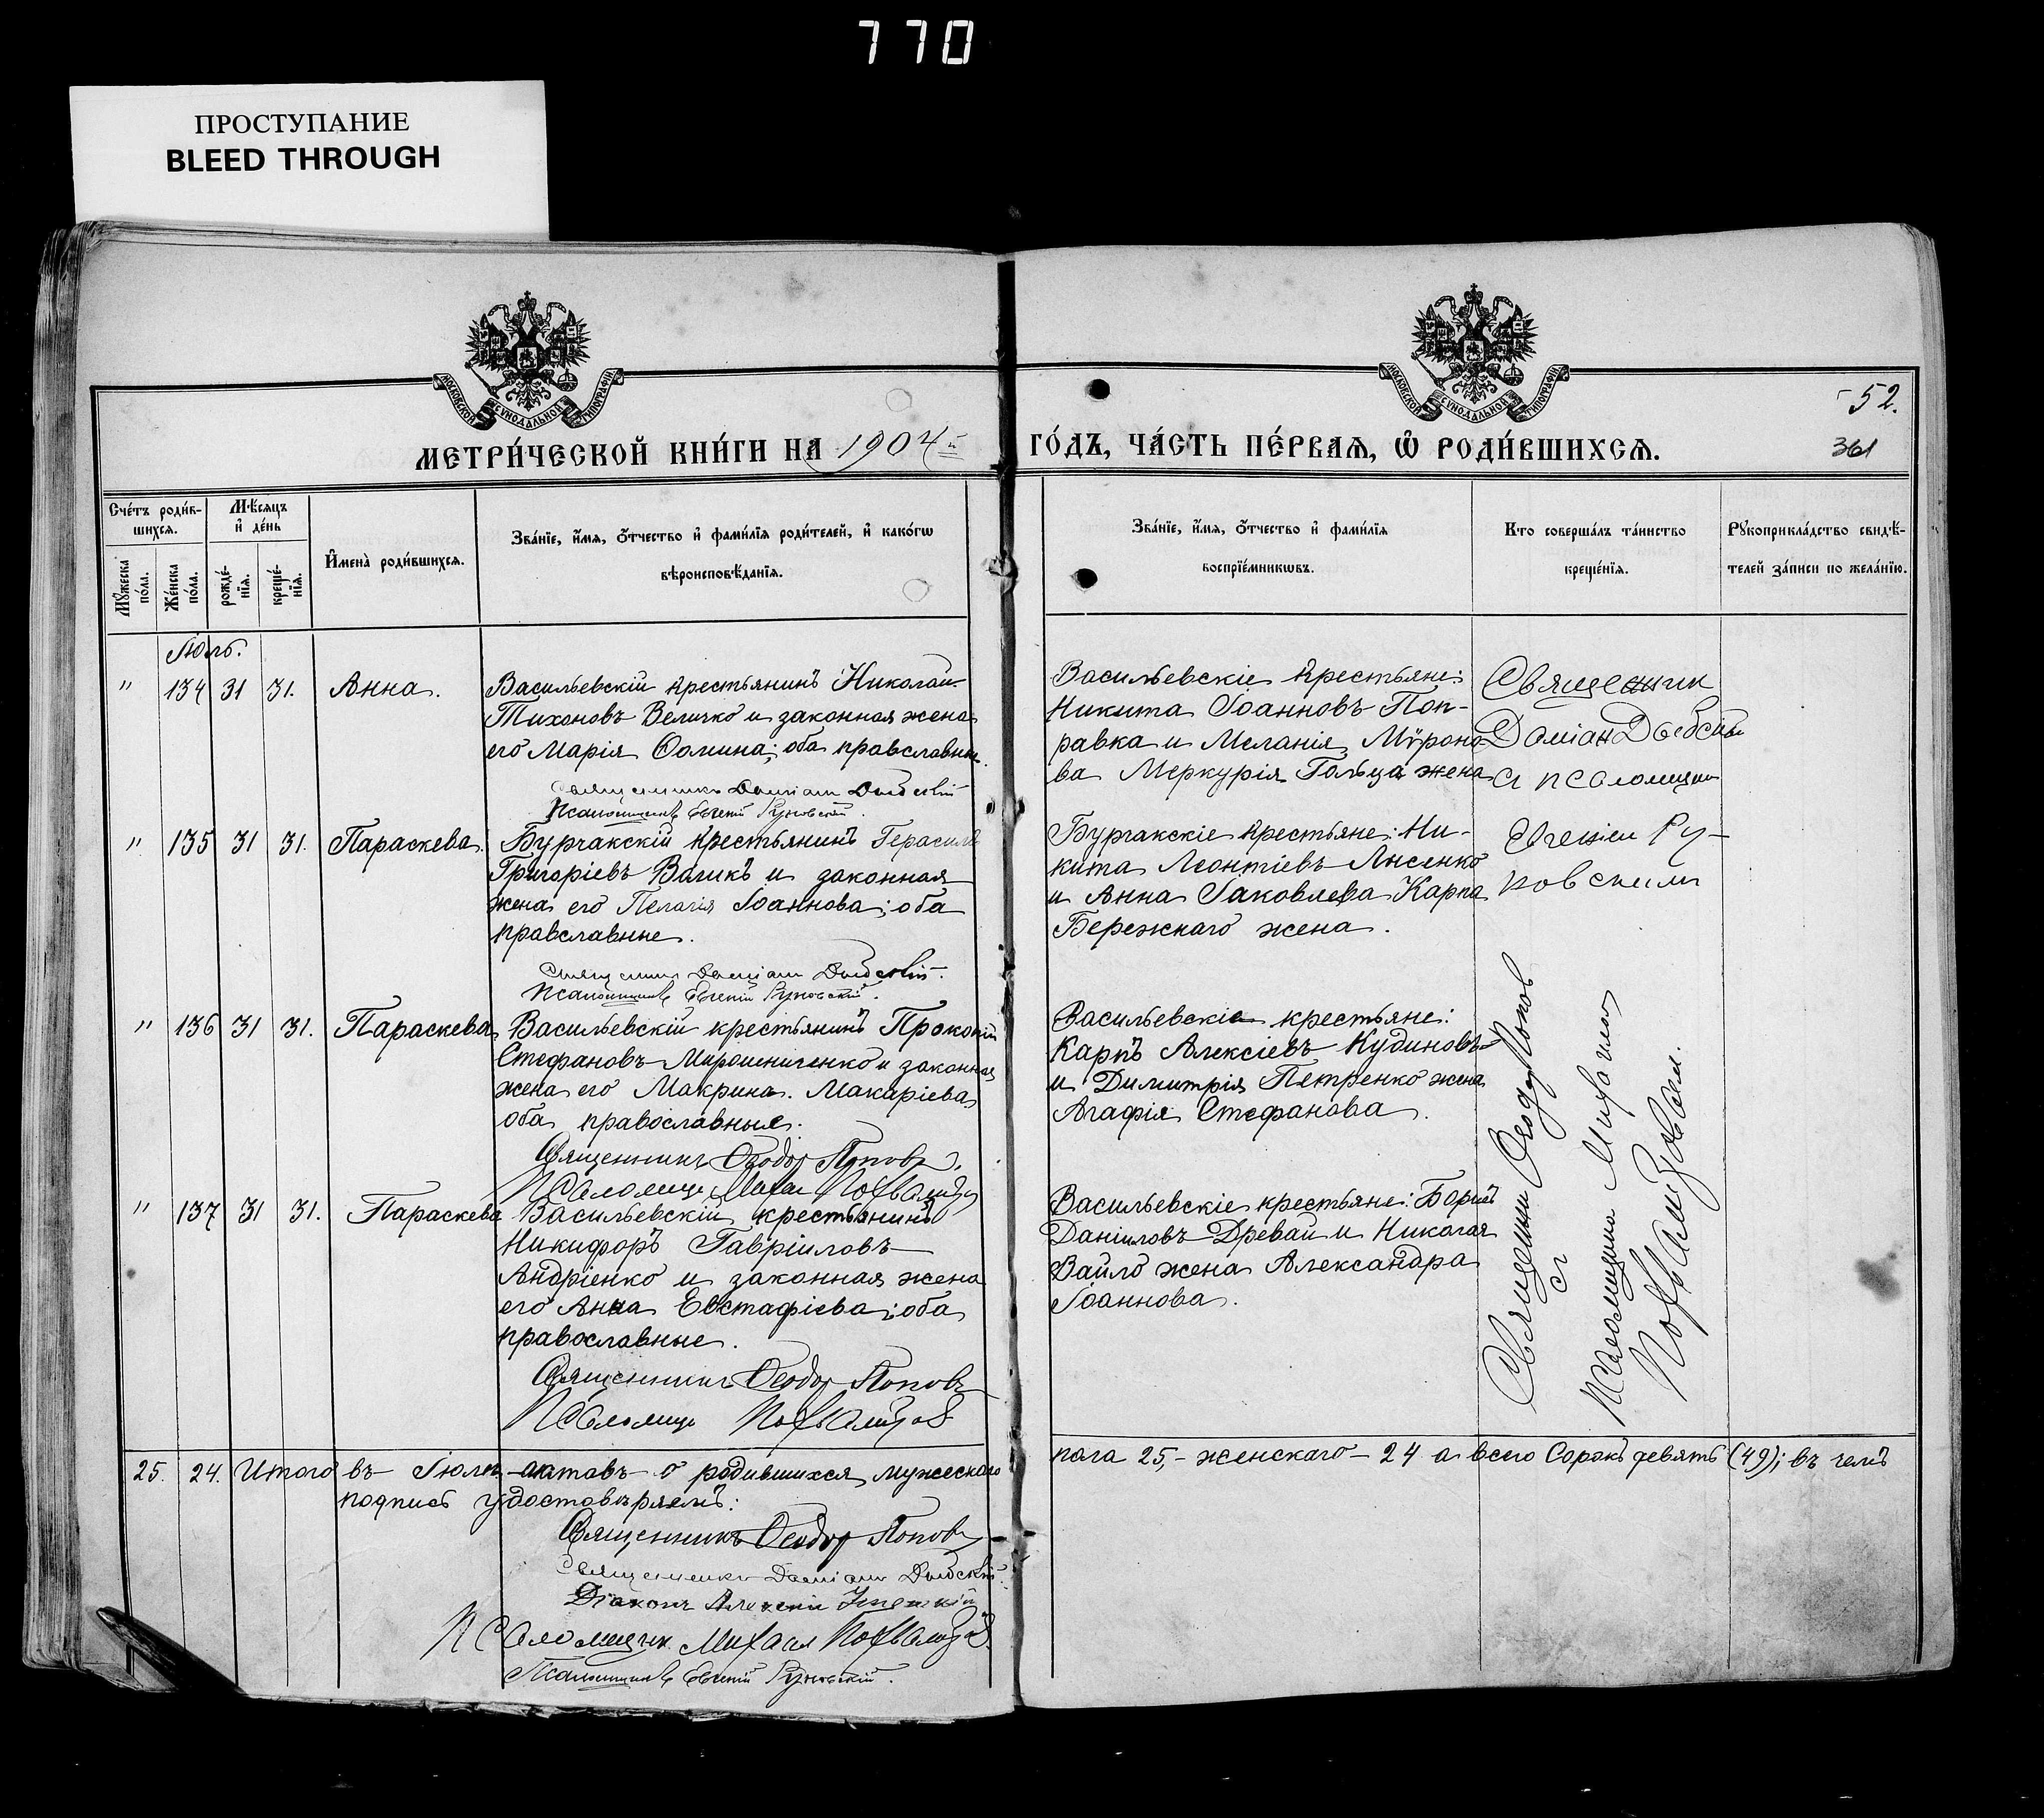 770
ПРОСТУПАНИЕ
BLEED THROUGH
МОСКОВСКОЙ СУНОДАЛЬНОЙ ТИПОГРАФІИ
МОСКОВСКОЙ СУНОДАЛЬНОЙ ТИПОГРАФІИ
52.
МЕТРИ́ЧЕСКОЙ КНИ́ГИ НА 1904
ГО́ДЪ, ЧА́СТЬ ПЕ́РВАѦ, Ѽ РОДИ́ВШИХСѦ.
361
Сче́тъ роди́в-
шихсѧ.
Мѣ́сѧцъ
и҆ де́нь
Мꙋ́жеска
по́ла.
Же́нска
по́ла.
рожде́-
нїѧ.
креще́-
нїѧ.
И҆мена̀ роди́вшихсѧ.
Зва́нїе, и҆́мѧ, ѻ҆́тчество и҆ фами́лїѧ роди́телей, и҆ како́гѡ
вѣроисповѣ́данїѧ.
Зва́нїе, и҆́мѧ, ѻ҆́тчество и҆ фами́лїѧ
воспрїе́мникѡвъ.
Кто соверша́лъ та́инство
креще́нїѧ.
Рꙋкоприкла́дство свидѣ́-
телей за́писи по жела́нїю.
Іюль.
" 134 31 31. Анна.
Васильевскій крестьянинъ Николай
Тихоновъ Величко и законная жена
его Марія Фомина; оба православные.
Священникъ Даміан
Псаломщикъ Евгеній Руновскій.
Васильевскіе крестьяне:
Никита Іоанновъ Поп-
равка и Меланія Мѵроно-
ва Меркурія Гольца жена
Священник
Даміан
с псаломщиком
Евгеніем Ру-
новским
" 135 31 31. Параскева.
Бурчакскій крестьянинъ Герасимъ
Григоріевъ Вагикъ и законная
жена его Пелагія Іоаннова; оба
православные.
Священник Даміан
Псаломщикъ Евгеній Руновскій.
Бурчакскіе крестьяне: Ни-
кита Леонтіевъ Лысенко
и Анна Іаковлева Карпа
Бережнаго жена.
" 136 31 31. Параскева
Васильевскій крестьянинъ Прокопій
Стефановъ Мирошниченко и законная
жена его Макрина Макаріева
оба православные.
Священникъ Ѳеодор Поповъ.
Псаломщ. Михаил
Васильевскіе крестьяне:
Карпъ Алексіевъ Кудиновъ
и Димитрія Петренко жена
Агафія Стефанова.
Священник Ѳеодор Попов
с
псаломщиком Михаилом
" 137 31 31. Параскева
Васильевскій крестьянинъ
Никифоръ Гавріиловъ
Андріенко и законная жена
его Анна Евстафіева; оба
православные.
Священникъ Ѳеодор Поповъ
Псаломщ.
Васильевскіе крестьяне: Борисъ
Даніиловъ Древай и Николая
Вайло жена Александра
Іоаннова.
25. 24. Итого въ Іюлѣ актовъ о родившихся мужескаго
пола 25,- женскаго - 24 а всего Сорокъ девять (49); въ чемъ
подписъ удостовѣряемъ:
Священникъ Ѳеодор Поповъ
Священникъ Даміан
Діаконъ Алексій
Псаломщик Михаил
Псаломщикъ Евгеній Руновскій.